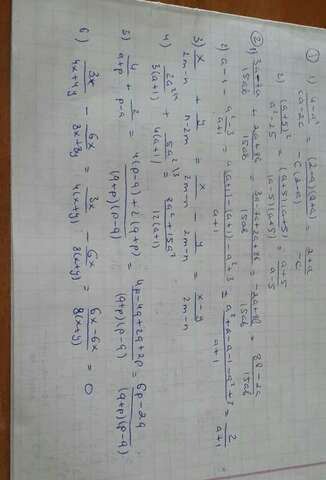 ① 1) (4-a²)/(ca-2c) = ((2-a)(2+a))/(-c(2-a)) = (2+a)/(-c)
2) (a+5)²/(a²-25) = ((a+5)(a+5))/((a-5)(a+5)) = (a+5)/(a-5)
② 1) (3a-7a)/(15ab) + (2a+8b)/(15ab) = (3a-7a+2a+8b)/(15ab) = (-2a+8b)/(15ab) = (8b-2a)/(15ab)
2) a-1 - (a²-3)/(a+1) = (a(a+1)-(a+1)-a²+3)/(a+1) = (a²+a-a-1-a²+3)/(a+1) = 2/(a+1)
3) x/(2m-n) + y/(n-2m) = x/(2m-n) - y/(2m-n) = (x-y)/(2m-n)
4) 2a²\4/(3(a+1)) + 5a²\3/(4(a+1)) = (8a²+15a²)/(12(a+1))
5) 4/(q+p) + 2/(p-q) = (4(p-q)+2(q+p))/((q+p)(p-q)) = (4p-4q+2q+2p)/((q+p)(p-q)) = (6p-2q)/((q+p)(p-q))
6) 3x/(4x+4y) - 6x/(8x+8y) = 3x/(4(x+y)) - 6x/(8(x+y)) = (6x-6x)/(8(x+y)) = 0